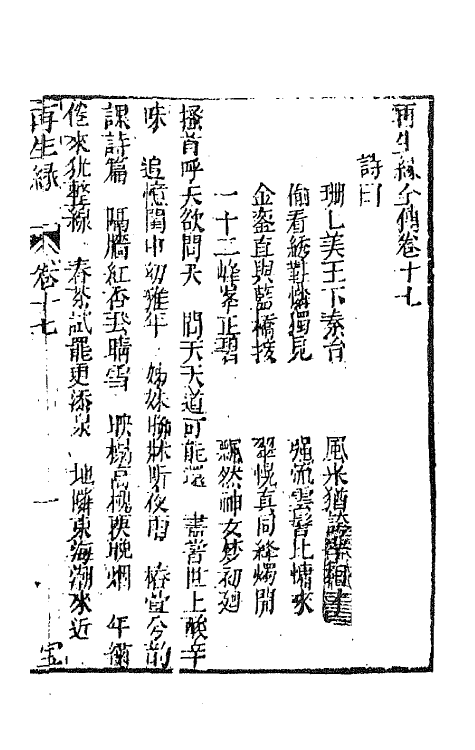 再生緣全傳卷十七
詩曰
珊乚美玉下秦台　風來猶
偷看綉鞋憐獨見　强流雲髩比慵來
金盌直與藍橋接　翠幌真同絳燭開
一十二峰峯正碧　飄然神女夢初廻
搔首呼天欲問天　問天天道可能還　盡嘗世上酸辛
味　追憶閨中幼稚年　姊妹聯牀聽夜雨　椿萱分韵
課詩篇　隔牆紅杏飛晴雪　映榻高槐覆晚烟　午綉
倦來猶整線　春茶試罷更添泉　地隣東海潮來近
再生緣　卷十七　一　宝